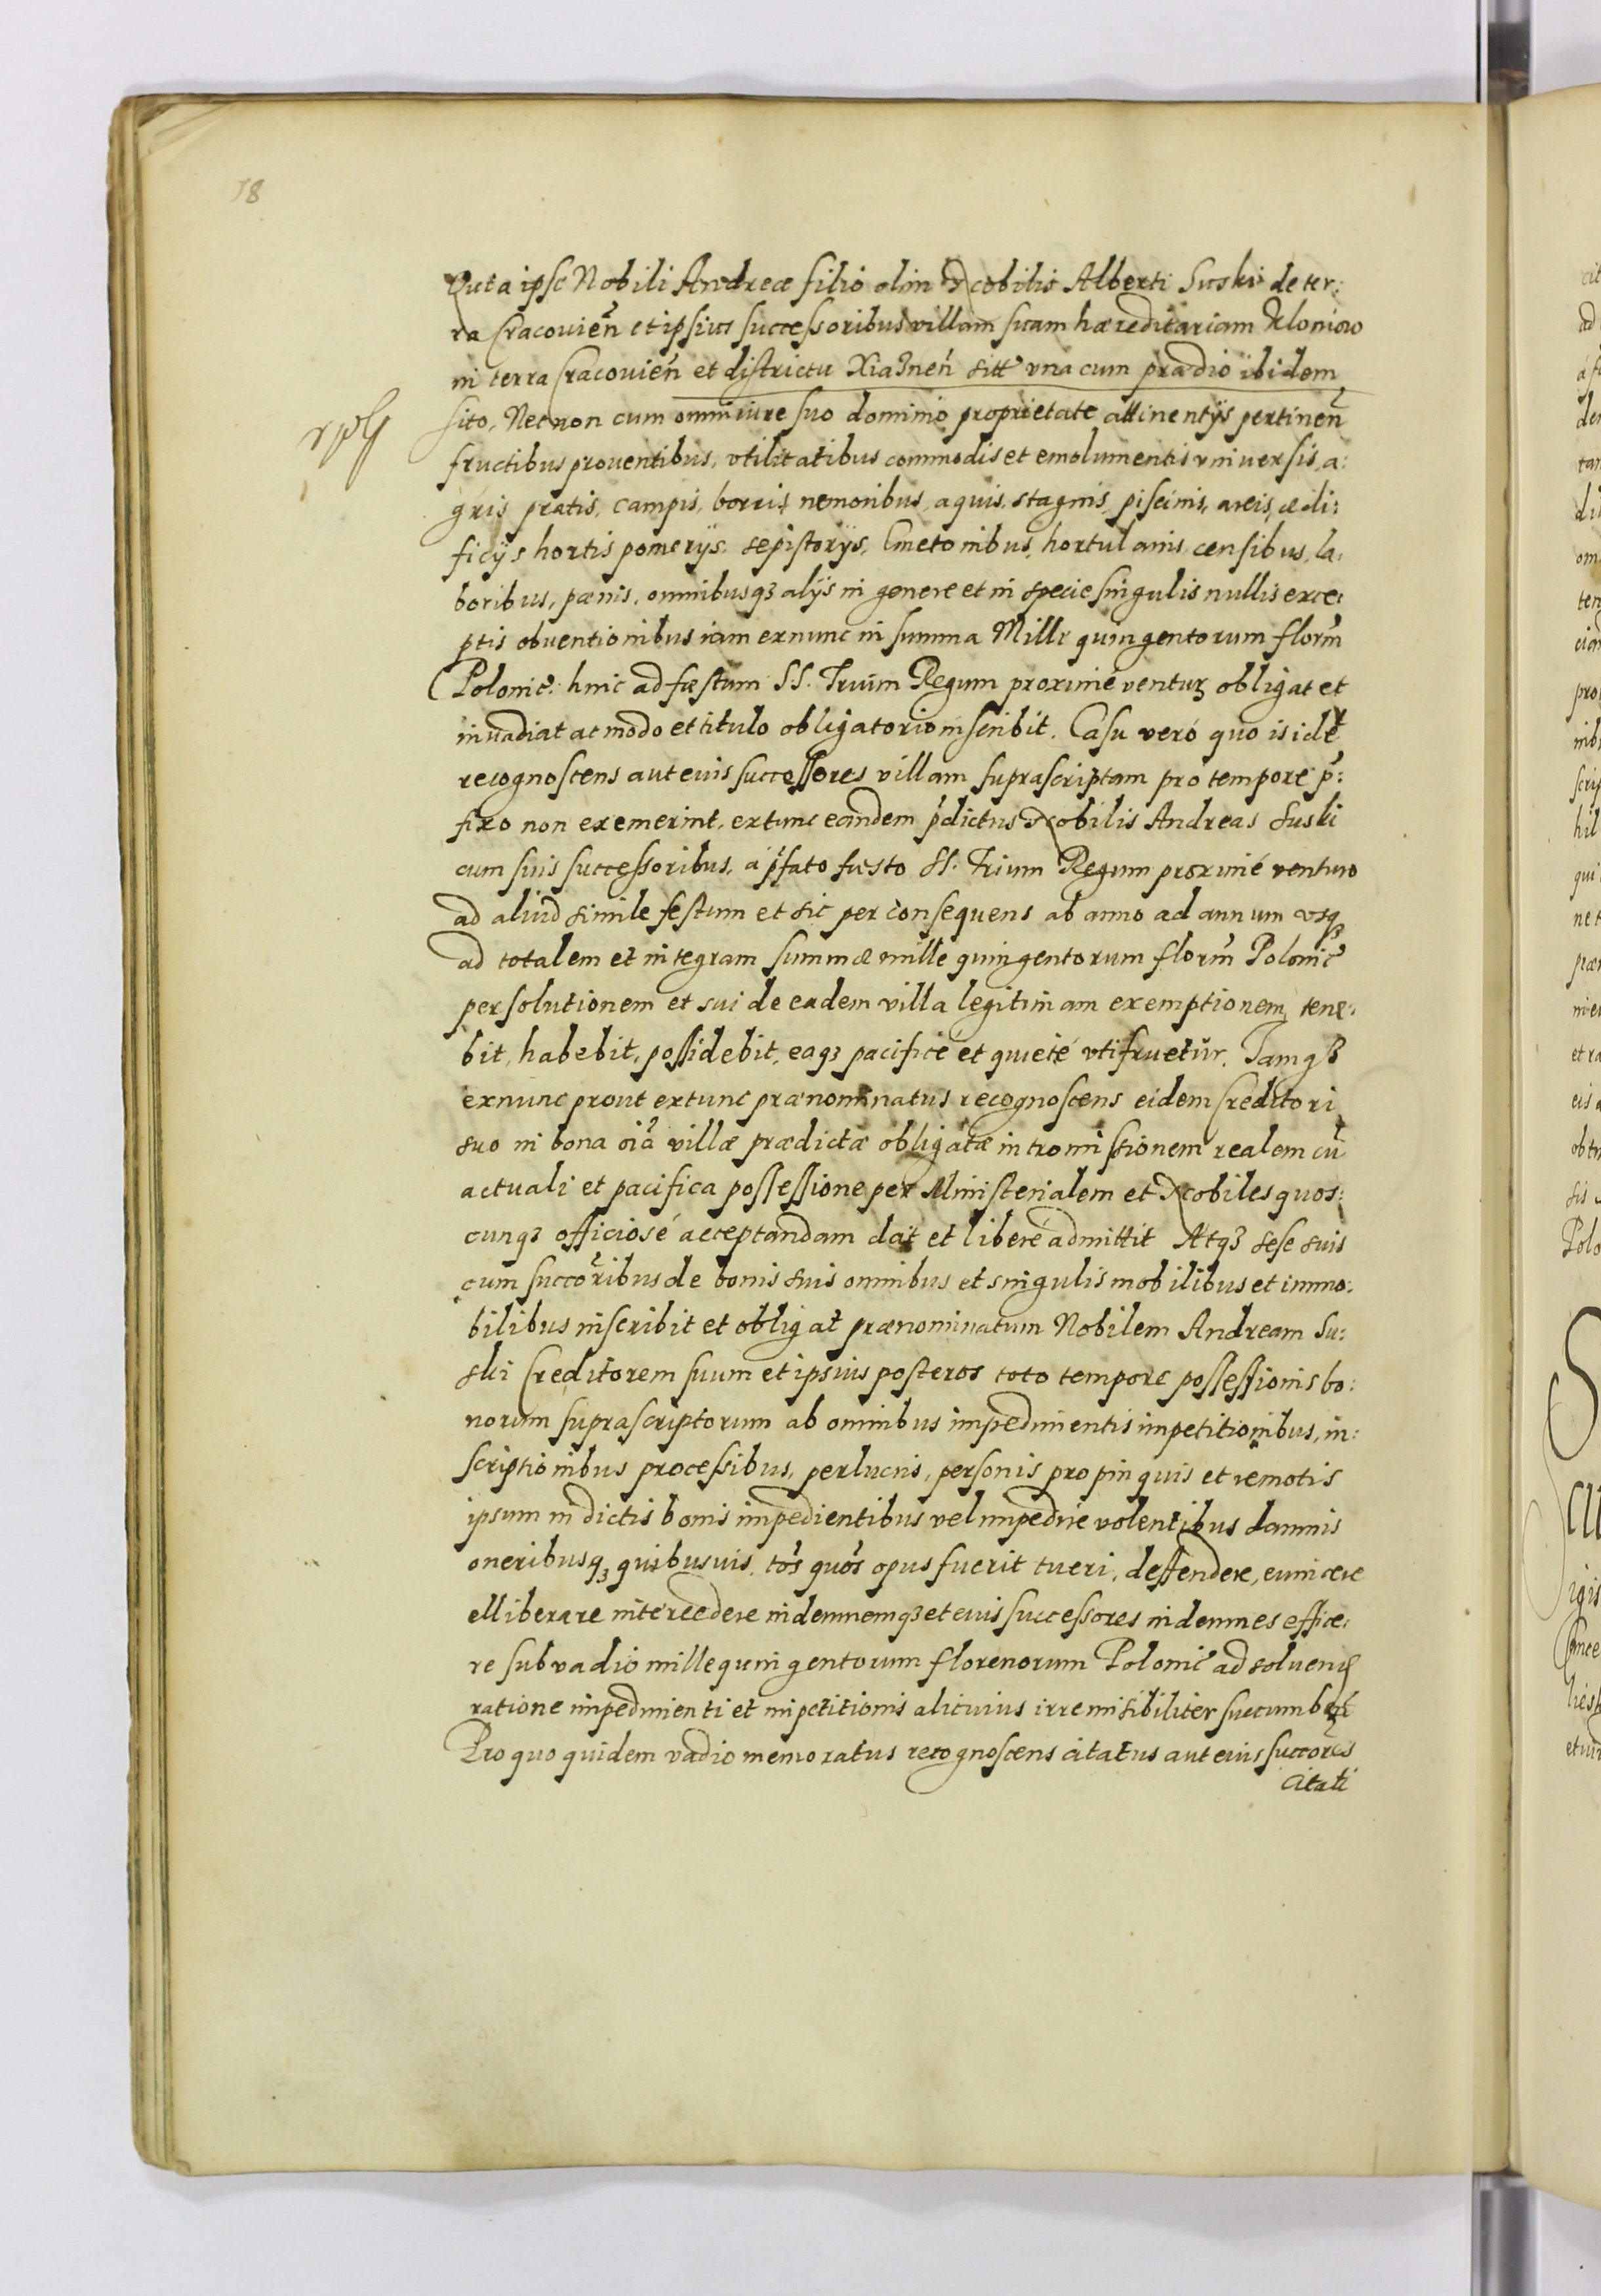 18
Quta ipse Nobili Andreæ filio olim Nobilis Alberti Suski de ter:
ra Cracouień et ipsius successoribus villam suam hæreditariam Kloniow
in terra Cracouień et districtu Xiązneń sitt vna cum prædio ibidem
sito, Necnon cum omni iure suo dominio proprietate attinentijs pertineń
fructibus prouentibus, vtilitatibus commodis et emolumentis vniuersis, a:
gris pratis, campis, borris, nemoribus, aquis, stagnis, piscinis, areis, ædi:
ficijs hortis pomerijs, sepistorijs, Cmetonibus, hortulanis, censibus, la:
boribus, pænis, omnibusqȝ alijs in genere et in specie singulis nullis exce:
ptis obuentionibus iam exnunc in summa Mille quingentorum florm̃
Polonic: hinc ad fæstum SS. Trium Regum proximé ventuȝ obligat et
inuadiat ac modo et titulo obligatorio inscribit. Casu veró quo is idē
recognoscens aut euis successores villam suprascriptam pro tempore p̃:
fixo non exemerint, extunc eandem p̃dictus Nobilis Andreas Suski
cum suis successoribus, á p̃fato fæsto SS. Trium Regum proximé venturo
ad aliud simile festum et sic per consequens ab anno ad annum vsqȝ
ad totalem et integram summæ mille quingentorum florm̃ Polonic̃
persolutionem et sui de eadem villa legitimam exemptionem, tene:
bit, habebit, possidebit, eaqȝ pacificé et quieté vtifruetur. Iamqȝ
exnunc prout extunc prænominatus recognoscens eidem Creditori
suo in bona oĩa villæ prædictæ obligatæ intromissionem realem cū
actuali et pacifica possessione per Ministerialem et Nobiles quos:
cunqȝ officiosé acceptandam dat et liberé admittit Atqȝ sese suis
cum succor̃ibus de bonis suis omnibus et singulis mobilibus et immo:
bilibus inscribit et obligat prænominatum Nobilem Andream Su:
ski Creditorem suum et ipsius posteros toto tempore possessionis bo:
norum suprascriptorum ab omnibus impedimentis impetitionibus, in:
scriptionibus processibus, perlucris, personis propinquis et remotis
ipsum in dictis bonis impedientibus vel impedire volentibus damnis
oneribusqȝ quibusuis, tos̃ quos̃ opus fuerit tueri, deffendere, euincere
elliberare intercedere indemnemqȝ et euis successores indemnes effice:
re sub vadio mille quingentorum florenorum Polonic̃ ad soluend
ratione impedimenti et impetitionis alicuius irremisibiliter succumbeń
Pro quo quidem vadio memoratus recognoscens citatus aut euis succores
citati